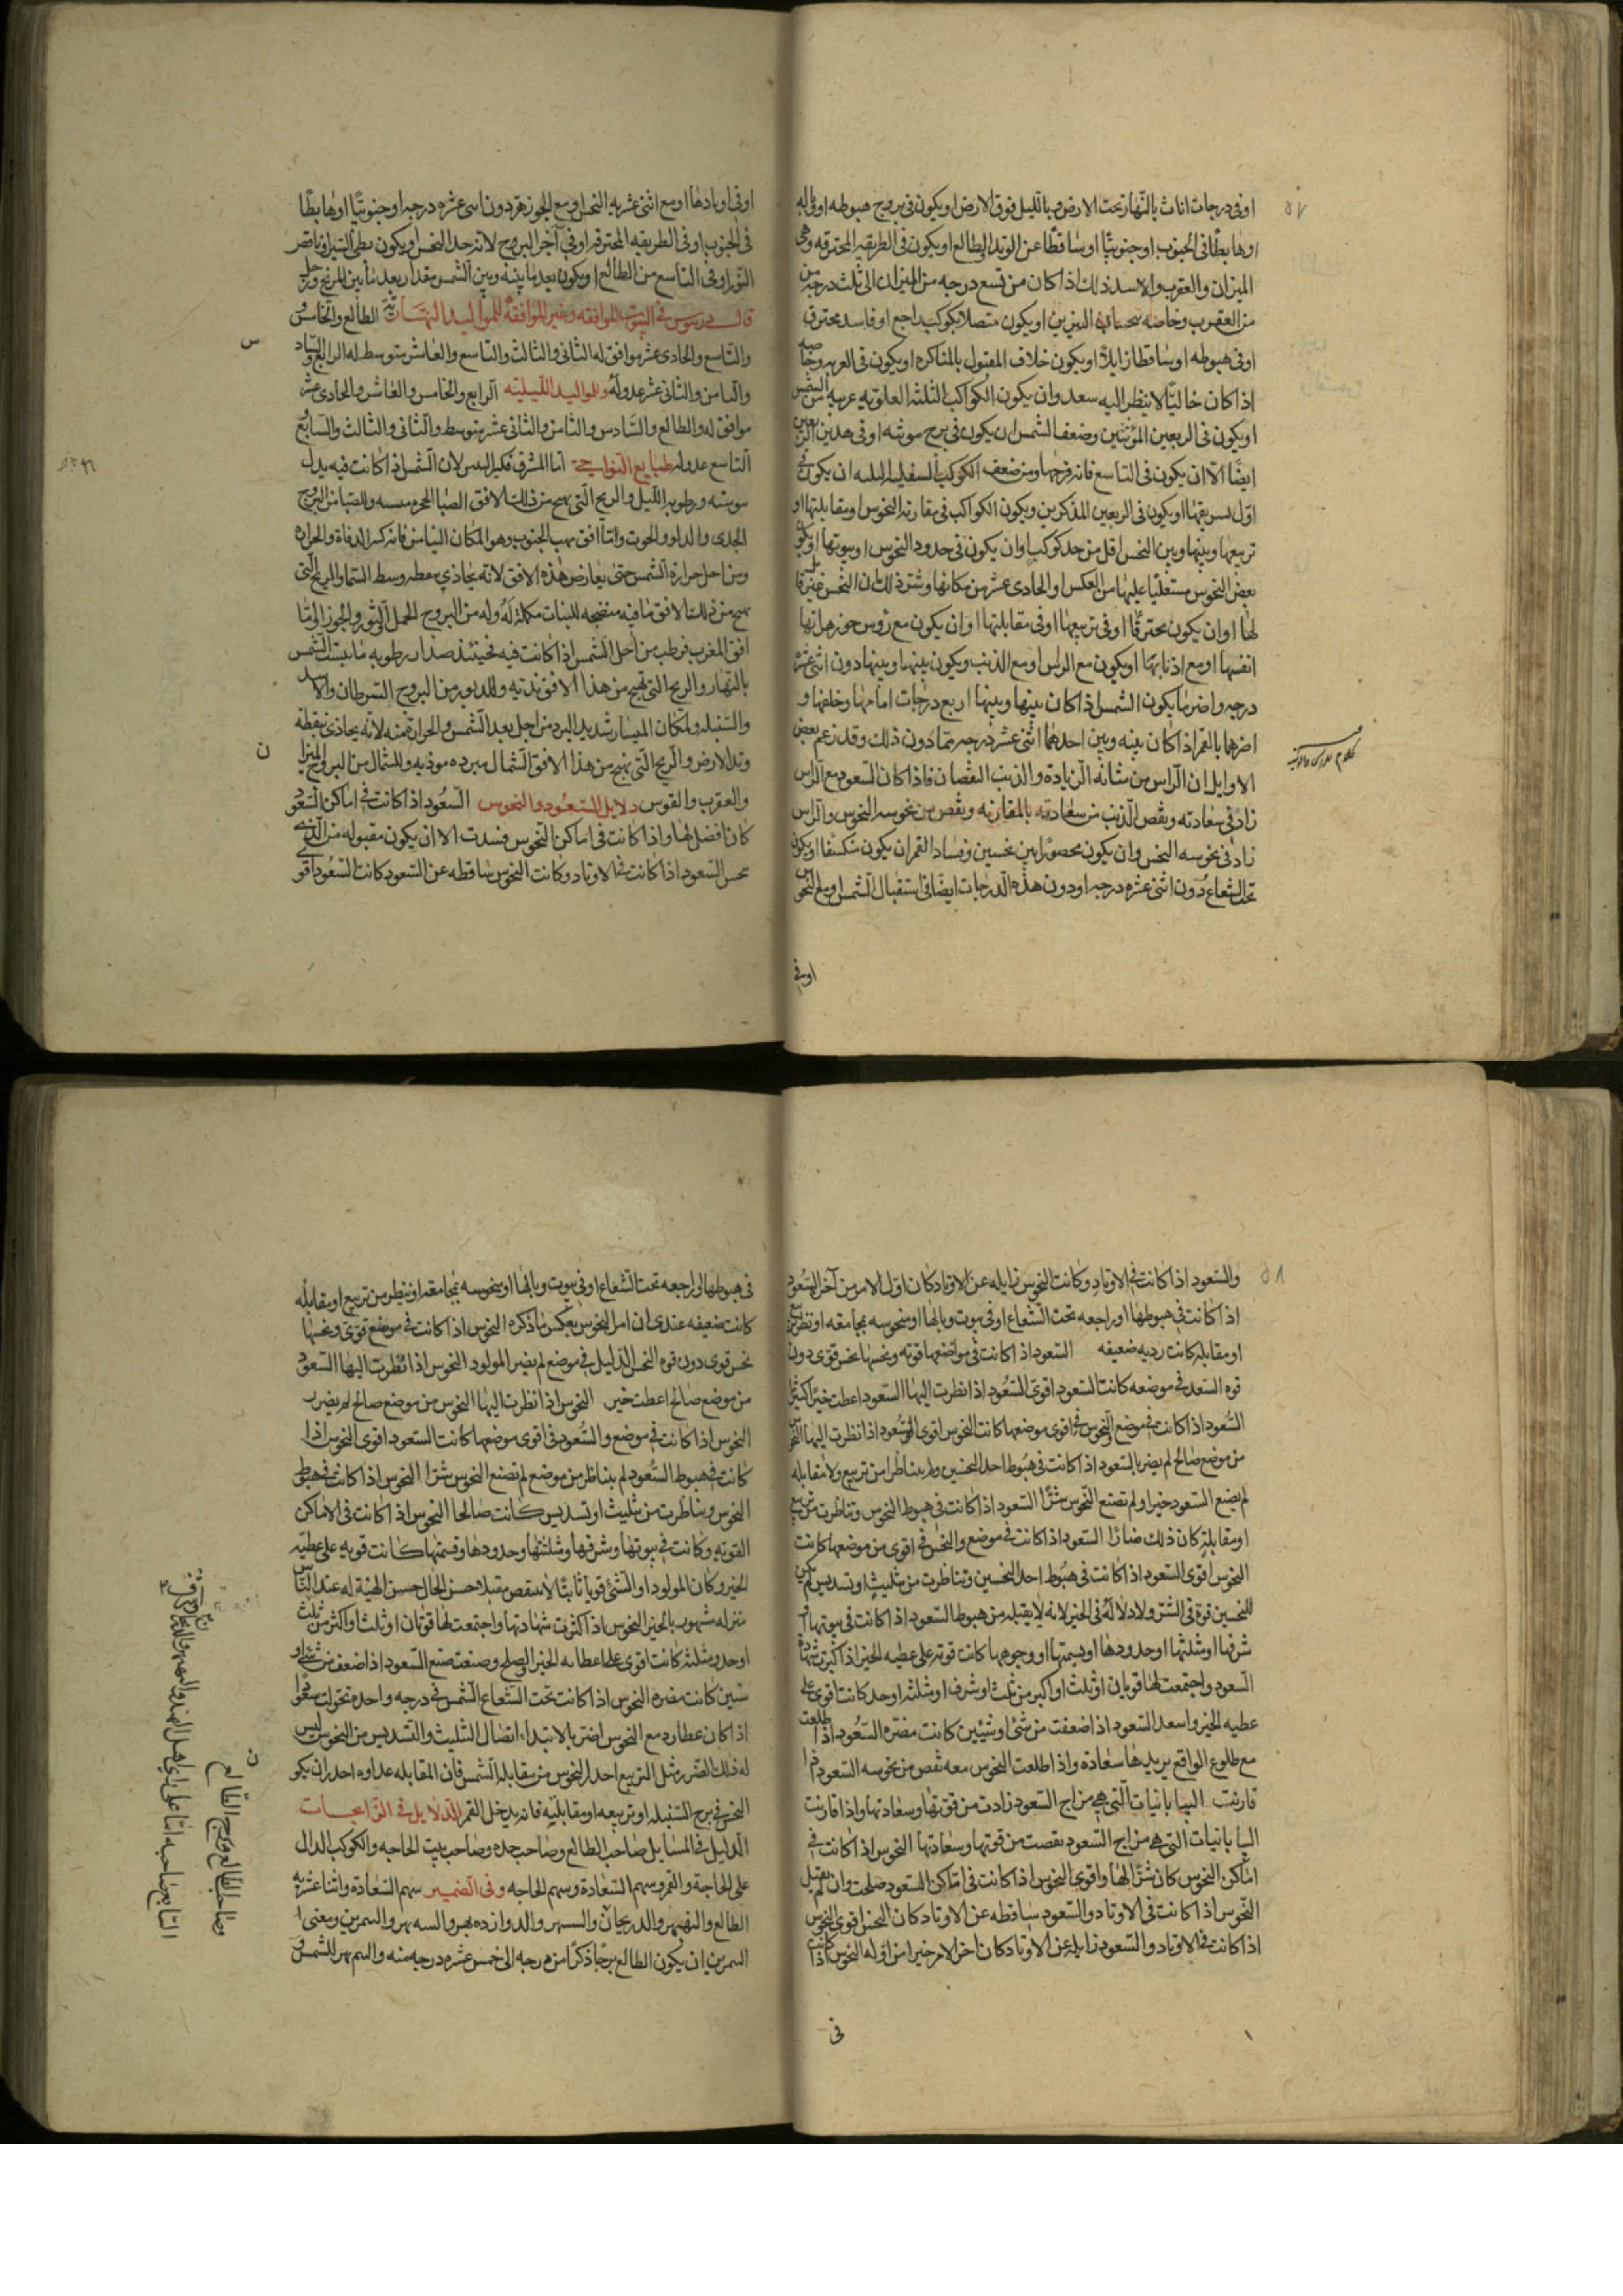 ٥٧
اوفى درجات اناث بالنهار تحت الارض وبالليل فوق الارض او يكون فى بروج هبوطه او وباله
او هابطا فى الجنوب او جنوبيا او ساقطا عن الوتد الطالع او يكون فى الطريقه المحترقه وهى
الميزان والعقرب والاسد ذلك اذا كان من تسع درجه من الميزان الى ثلث درجه من
من العقرب وخاصه النيرين او يكون متصلا بكوكب راجع او فاسد محترق
او فى هبوطه او ساقطا زايلا او يكون خلاف المقبول بالمناكره او يكون فى الغربه وخاصه
اذا كان خاليا لا ينظر اليه سعد وان يكون الكواكب الثلثه العلويه غربيه من الشمس
او يكون فى الربعين المؤنثين وضعف الشمس ان يكون فى برج مونثه او فى هذين الربعين
ايضا الا ان يكون فى التاسع فانه فرحها ومن ضعف الكوكب السفليه ان يكون فى
اول تشريقها او يكون فى الربعين المذكرين ويكون الكواكب فى مقارنه النحوس او مقابلتها او
تربيعها وبينها وبين النحس اقل من حد كوكب او ان يكون فى حدود النحوس او بيوتها او يكون
بعض النحوس مستعليا عليها من العكس او الحادى عشر من مكانها وشر ذلك ان النحس غير قابل
لها او ان يكون محترقا او فى تربيعها او فى مقابلتها او ان يكون مع رؤس جوزهراتها
انفسها او مع اذنابها او يكون مع الراس او مع الذنب ويكون بينها وبينها دون اثنى عشره
درجه واضر ما يكون الشمس اذا كان بينها وبينها اربع درجات امامها وخلفها و
اضرهما بالقمر اذا كان بينه وبين احدهما اثنى عشر درجه فما دون ذلك وقد زعم بعض
الاوايل ان الراس من شانه الزيادة والذنب النقصان فاذا كان السعود مع الراس
زاد فى سعادته ونقص الذنب من سعادته بالمقارنه ونقص من نحوسه النحوس والراس
زاد فى نحوسه النحس وان يكون محصورا بين نحسين وفساد القمر ان يكون منكسفا او يكون
تحت الشعاع دون اثنى عشره درجه او دون هذه الدرجات ايضا فى استقبال الشمس او مع النحوس
اوفى
اوفى اوتادها او مع اثنى عشريه النحس او مع الجوزهر دون اثنى عشره درجه او جنوبيا او هابطا
فى الجنوب او فى الطريقه المحترقه او فى آخر البروج لانه حد النحس او يكون بطى السير او ناقص
النور او فى التاسع من الطالع او يكون بعد ما بينه وبين الشمس مقدار بعد ما بين المريخ وزحل
قال دريوس فى البيوت الموافقه وغير الموافقه للمواليد النهاريه الطالع والخامس
والتاسع والحادى عشر موافق له الثانى والثالث والتاسع والعاشر متوسط له الرابع والسادس
والثامن والثانى عشر عدو له وللمواليد الليليه الرابع والخامس والعاشر والحادى عشر
موافق له والطالع والسادس والثامن والثانى عشر متوسط والثانى والثالث والسابع
التاسع عدو له طبايع النواحى اما المشرق فكثير اليبس لان الشمس اذا كانت فيه يبدل
يبوسته ورطوبه الليل والريح التى تهيج من ذلك الافق الصبا وللصبا من البروج
الجدى والدلو والحوت واما افق مهب الجنوب وهو المكان اليابس فانه كثير الدفاة والحراره
ومن اجل حرارة الشمس حتى يعارض هذه الافق لانه يحاذى بنقطه وسط السماء والريح التى
تهيج من ذلك الافق مافيه منضجه للنبات مكمله له وله من البروج الحمل الثور والجوزا واما
افق المغرب فرطب من اجل الشمس اذا كانت فيه فحينئذ ضدار رطوبه ما يبست الشمس
بالنهار والريح التى تهيج من هذا الافق نديه وللدبور من البروج السرطان والاسد
والسنبله ولمكان اليسار شديد البرد من اجل بعد الشمس والحرارة منه لانه يحاذى بنقطه
وتد الارض والريح التى تهيج من هذا الافق الشمال مبرده موذيه وللشمال من البروج الميزان
والعقرب والقوس دلايل السعود والنحوس السعود اذا كانت فى اماكن السعود
كان افضل لها واذا كانت فى اماكن النحوس فسدت الا ان يكون مقبوله من الذى
نحس السعود اذا كانت فى الاوتاد وكانت النحوس ساقطه عن السعود كانت السعود اقوى
س
ن
٥٨
والسعود اذا كانت فى الاوتاد وكانت النحوس زايله عن الاوتاد كان اول الامر من آخر السعود
اذا كانت فى هبوطها او راجعه تحت الشعاع او فى بيوت وبالها او منحوسه بمجامعه او نظر تربيع
او مقابله كانت رديه ضعيفه السعود اذا كانت فى مواضعها قويه ونحسها نحس قوى دون
قوه السعد فى موضعه كانت السعود اقوى السعود اذا نظرت اليها السعود اعطت خيرا كثيرا
السعود اذا كانت فى موضع والنحوس فى اقوى موضعها كانت النحوس اقوى السعود اذا نظرت اليها النحوس
من موضع صالح لم يضر بالسعود اذا كانت فى هبوط احد النحسين ولم يتناظرا من تربيع ولا مقابله
لم يضع السعود خيرا ولم تصنع النحوس شرا السعود اذا كانت فى هبوط النحوس وتناظرت من تربيع
او مقابلة كان ذلك ضارا السعود اذا كانت فى موضع والنحس فى اقوى من موضعها كانت
النحوس اقوى السعود اذا كانت فى هبوط احد النحسين وتناظرت من تثليث او تسديس لم يكن
للنحسين قوة فى الشر ولا دلاله فى الخير لانه لا يقبله من هبوطها السعود اذا كانت فى بيوتها او
شرفها او مثلثتها او حدودها او قسمتها او وجوهها كانت قويه على عطيه الخير اذا كثرت شهادة
السعود واجتمعت لها قوتان او ثلث او اكثر من ثلث او شرف او مثلثه او حد كانت اقوى على
عطيه الخير واسعد السعود اذا ضعفت من شئ او شيئين كانت مضره السعود اذا طلعت
مع طلوع الواقع يريد بها سعادة واذا طلعت النحوس معه نقص من نحوسه السعود اذا
قارنت البيابانيات التى هى مزاج السعود زادت من قوتها وسعادتها واذا قارنت
البيابانيات التى هى مزاج السعود نقصت من قوتها وسعادتها النحوس اذا كانت فى
اماكن النحوس كان شرا لها واقوى النحوس اذا كانت فى اماكن السعود صلحت وان لم يقبل
النحوس اذا كانت فى الاوتاد والسعود ساقطه عن الاوتاد كان النحس اقوى النحوس
اذا كانت فى الاوتاد والسعود زايله عن الاوتاد كان اخر الامر خيرا من اوله النحوس اذا كانت
فى
فى هبوطها او راجعه تحت الشعاع او فى بيوت وبالها او منحوسه بمجامعه او ينظر من تربيع او مقابله
كانت ضعيفه عندى ان امر النحوس بعكس ما ذكره النحوس اذا كانت فى موضع قوى ونحسها
نحس قوى دون قوه النحس الدليل فى موضع لم يضر المولود النحوس اذا نظرت اليها السعود
من موضع صالح اعطت خير النحوس اذا نظرت اليها النحوس من موضع صالح لم يضرب
النحوس اذا كانت فى موضع والسعود فى اقوى موضعها كانت السعود اقوى النحوس اذا
كانت فى هبوط السعود لم يتناظر من موضع لم تصنع النحوس شرا النحوس اذا كانت فى هبوط
النحوس ويناظرت من تثليث او تسديس كانت صالحا النحوس اذا كانت فى الاماكن
القويه وكانت فى بيوتها وشرفها ومثلثتها وحدودها وقسمتها كانت قويه على عطيه
الخير وكان المولود او الشئ قويا ثابتا لا ينتقص مقبلا حسن الحال حسن الهيئة له عند الناس
منزله مشهور بالخير النحوس اذا كثرت شهادتها واجتمعت لها قوتان او ثلث او اكثر من ثلث
او حد ومثلثه كانت اقوى على اعطايه الخير الصلح وصنعت صنع السعود اذا ضعف من شئ او
شيئين كانت مضره النحوس اذا كانت تحت الشعاع الشمس فى درجه واحدة تحولت سعودا
اذا كان عطارد مع النحوس اضر بالابتداء اتصال التثليث والتسديس من النحوس ليس
له ذلك الضرر مثل التربيع احذر النحوس من مقابله الشمس فان المقابله عداوه احذر ان يكون
النحس فى برج السنبله او تربيعه او مقابليه فانه يدخل القمر الدلايل فى الزايجات
الدليل فى المسايل صاحب الطالع وصاحب حده وصاحب بيت الحاجه والكوكب الدال
على الحاجة والقمر وسهم السعادة وسهم الحاجه وفى الضمير سهم السعادة واثنا عشريه
الطالع والنهبهر والدريجان والدوازده بهر ومعنى
ان يكون الطالع برجا ذكرا من درجه الى خمس عشره درجه منه للشمس
ن
وصاحب الطالع وبرج الطالع